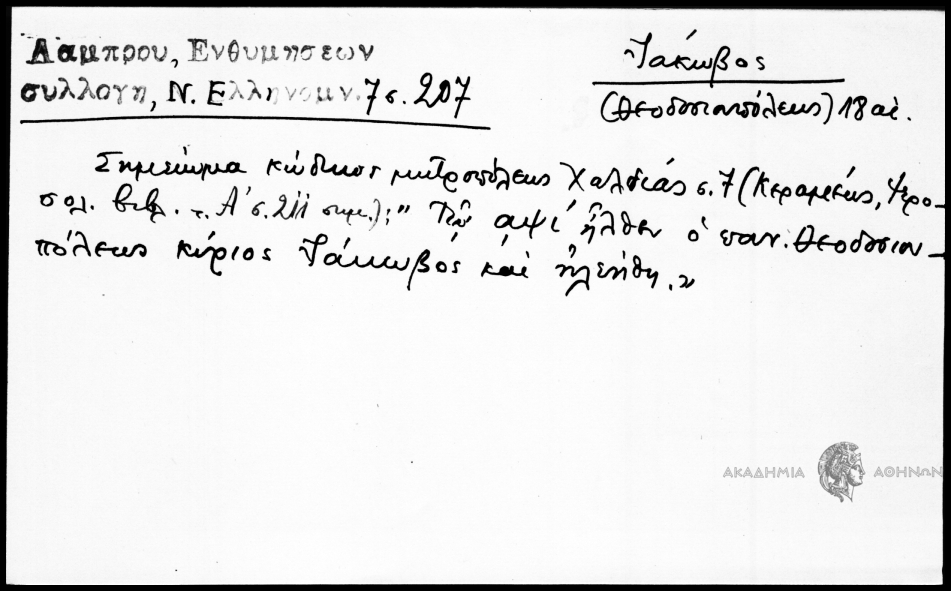 Λάμπρου, Ενθυμησεων
συλλογη, Ν. Ελληνομν. 7 σ. 207
Ἰάκωβος
(Θεοδοσιουπόλεως) 18 αἰ.
Σημείωμα κώδικος μητροπόλεως Χαλδίας σ. 7 (Κεραμεύς, Ἱερο-
σολ. βιβλ. τ. Α' σ. 211 σημ.); "Τῷ αψί ἦλθεν ὁ παν. Θεοδοσιου-
πόλεως κύριος Ἰάκωβος καὶ ἠλεήθη. "
ΑΚΑΔΗΜΙΑ ΑΘΗΝΩΝ